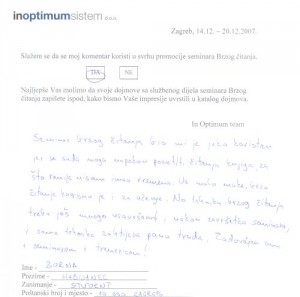 inoptimumsistem d.o.o.
Zagreb, 14.12. – 20.12.2007.
Slažem se da se moj komentar koristi u svrhu promocije seminara Brzog čitanja.
DA NE
Najljepše Vas molimo da svoje dojmove sa službenog dijela seminara Brzog
čitanja zapišete ispod, kako bismo Vaše impresije uvrstili u katalog dojmova.
In Optimum team
Seminar brzog čitanja bio mi je jako koristan
jer se sada mogu uspješno posvetiti čitanju knjiga, za
što ranije nisam imao vremena.
čitanje korisno je i za učenje. Na tehniku brzog čitanja
treba još mnogo usavršavati, nakon završetka seminara,
i sama tehnika zahtijeva puno truda. Zadovoljan sam
i seminarom i trenerima!
Ime - BORNA
Prezime -
Zanimanje - STUDENT
Poštanski broj i mjesto - 10 000 ZAGREB